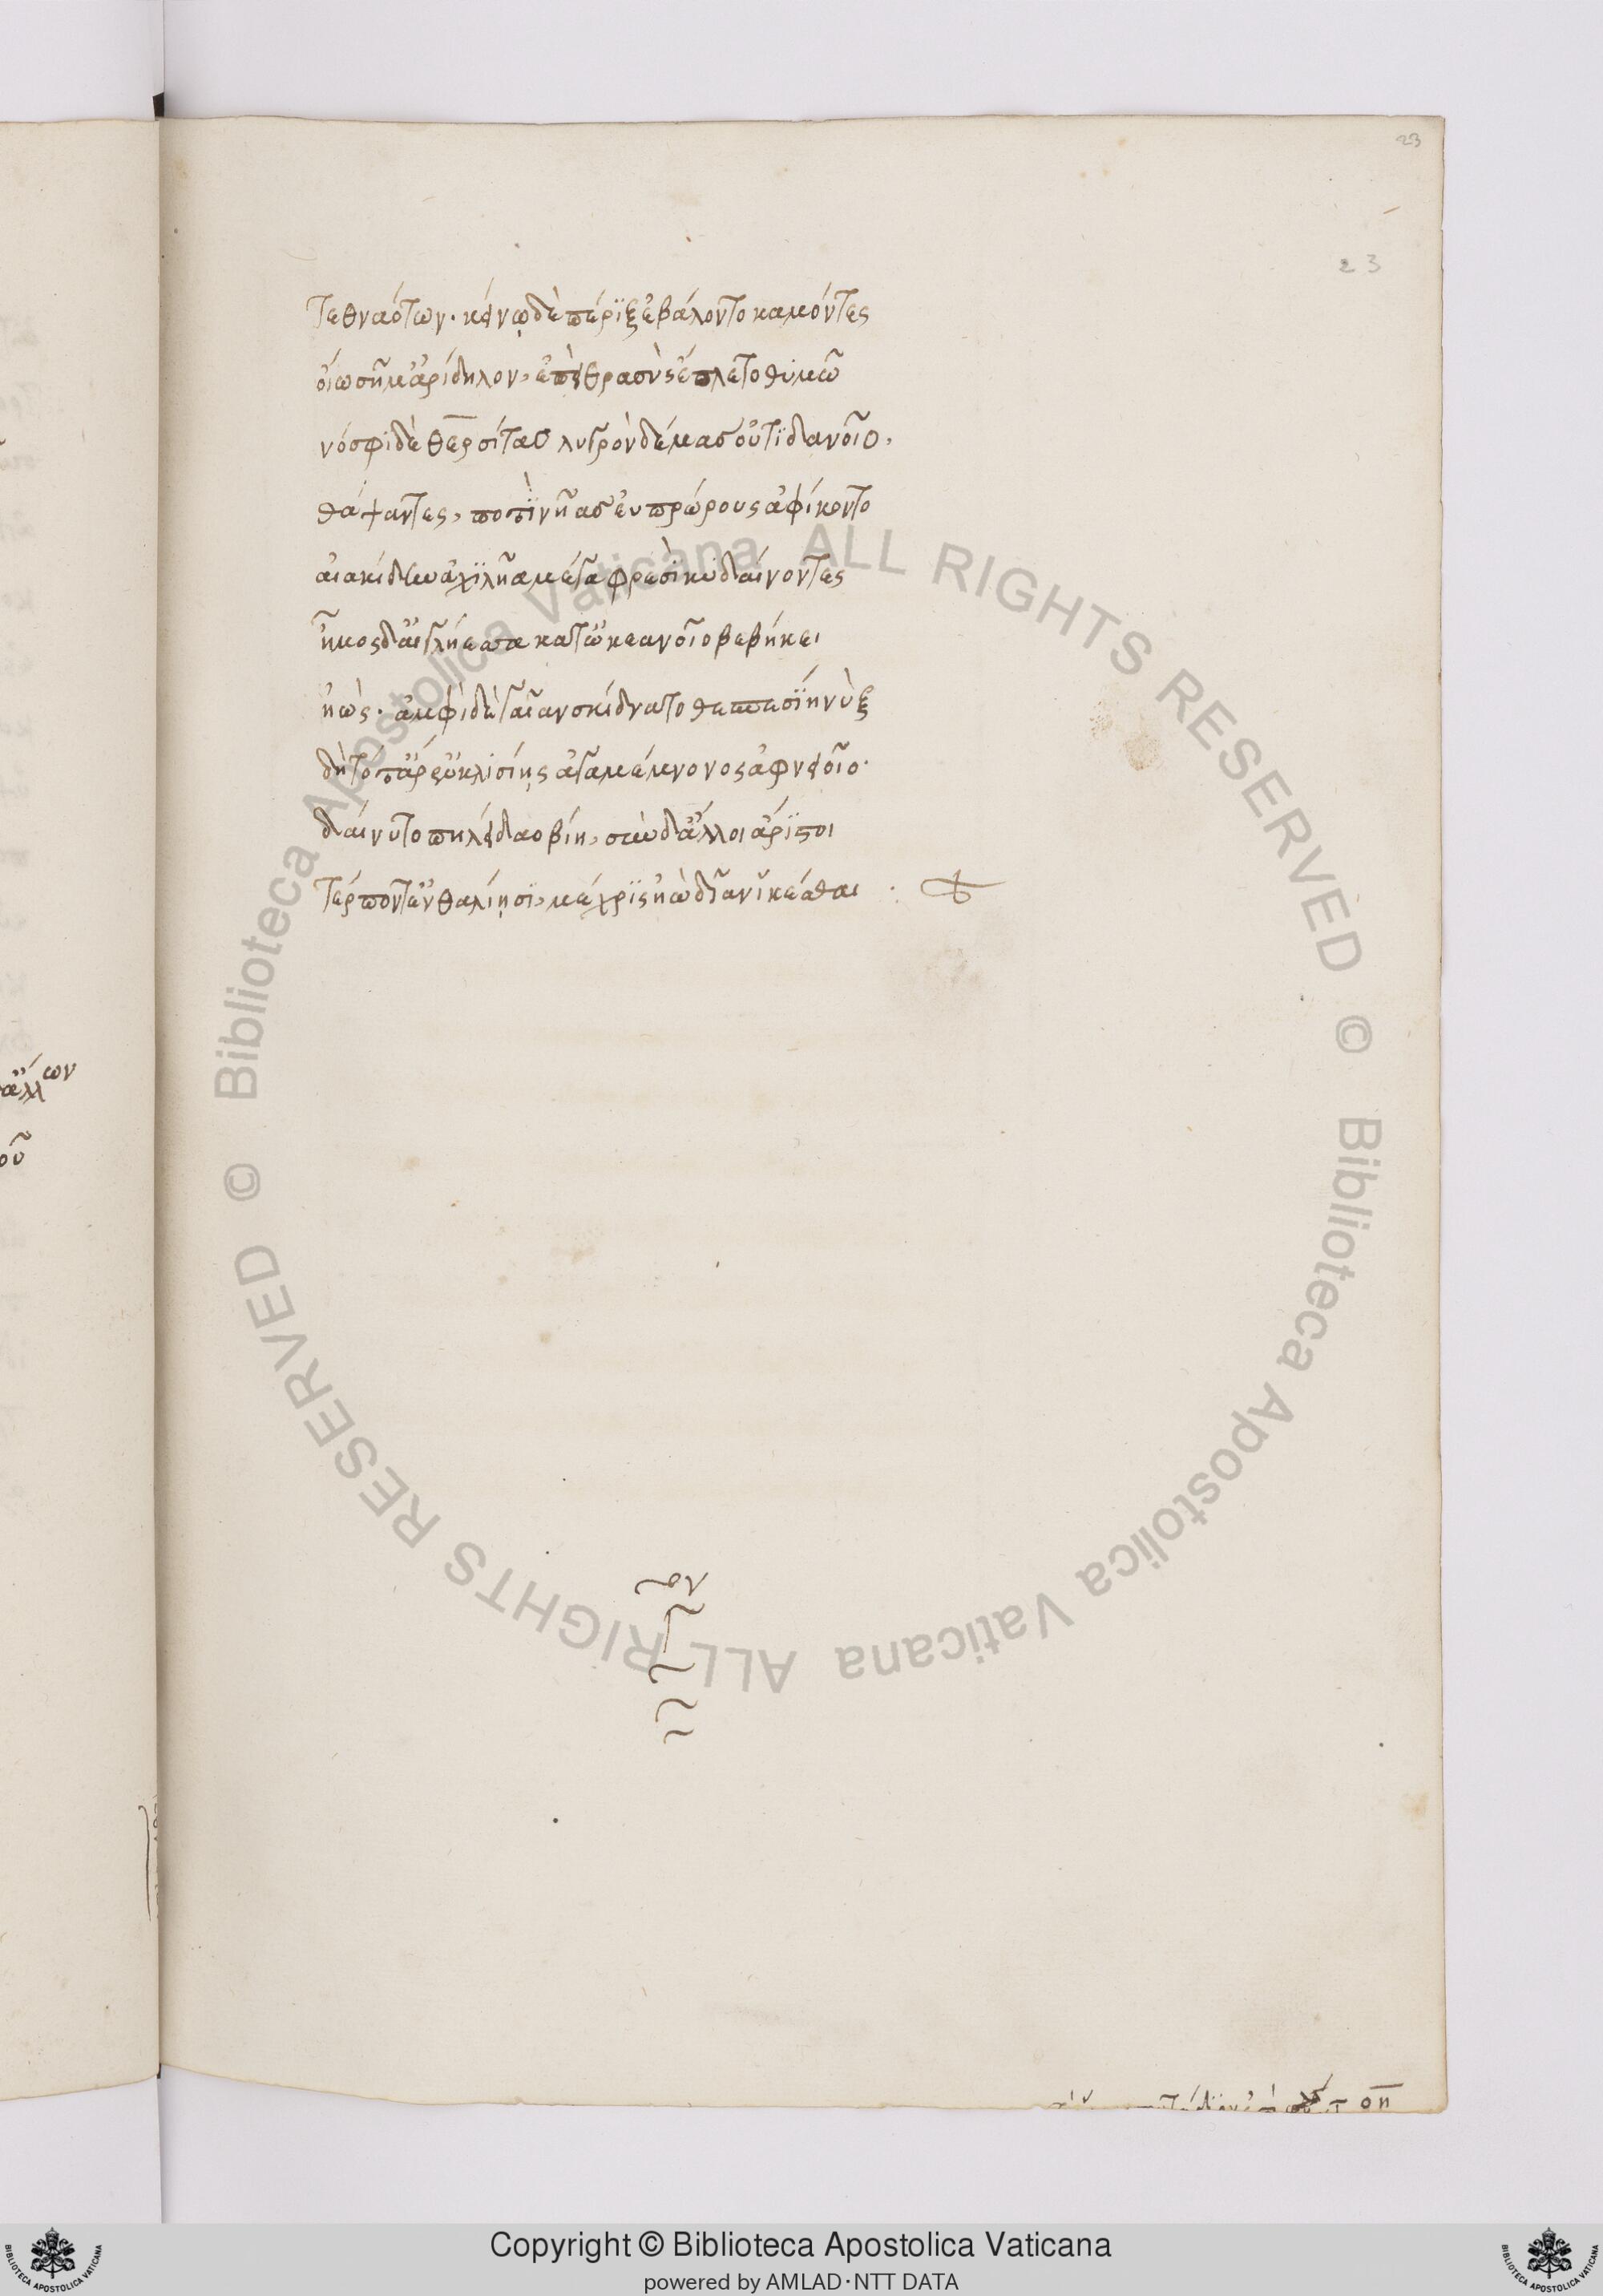 23
23
τεθναότων· κείνῳ δὲ πέριξ ἐβάλοντο καμόντες
οἴω σῆμ' ἀρίδηλον, ἐπεὶ θρασὺς ἔπλετο θυμῶ
νόσφι δὲ θερσίταο λυγρὸν δέμας οὐτιδανοῖο,
θάψαντες, ποτὶ νῆας ἐυπρώρους ἀφίκοντο
αἰακίδην ἀχιλῆα μέγα φρεσὶ κυδαίνοντες
ἦμος δ' αἰγλήεσσα κατ' ὠκεανοῖο βεβήκει
ἠὼς· ἀμφὶ δὲ γαῖαν σκίδνατο θεσπεσίη νὺξ
δὴ τότ' ἄρ' ἐν κλισίῃς ἀγαμέμνονος ἀφνειοῖο·
δαίνυτο πηλείδαο βίη, σὺν δ' ἄλλοι ἄριστοι
τέρποντ' ἐν θαλίῃσι, μέχρις ἠὼ δῖαν ἱκέσθαι
άλλων
οῦ
Copyright © Biblioteca Apostolica Vaticana
powered by AMLAD·NTT DATA
© Biblioteca Apostolica Vaticana ALL RIGHTS RESERVED
© Biblioteca Apostolica Vaticana ALL RIGHTS RESERVED
BIBLIOTECA APOSTOLICA VATICANA
BIBLIOTECA APOSTOLICA VATICANA